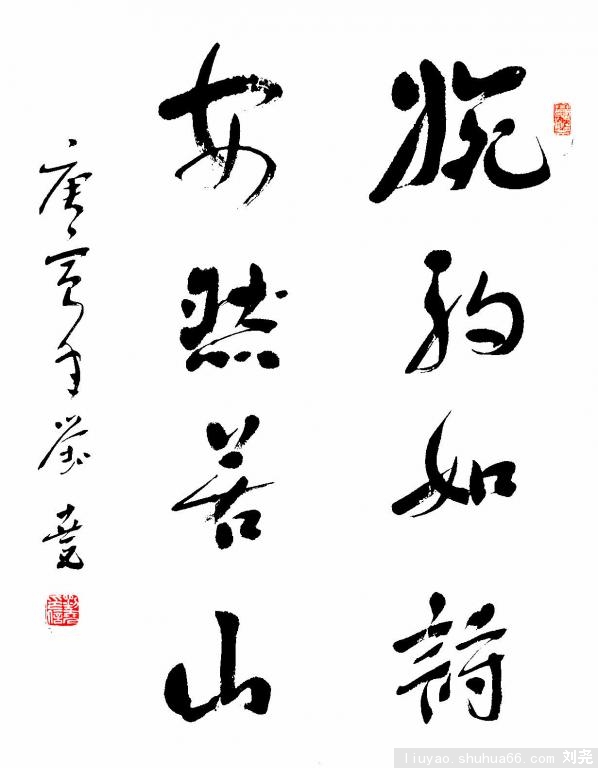 婉約如詩
安然若山
庚寅年劉堯
liuyao.shuhua66.com 刘尧